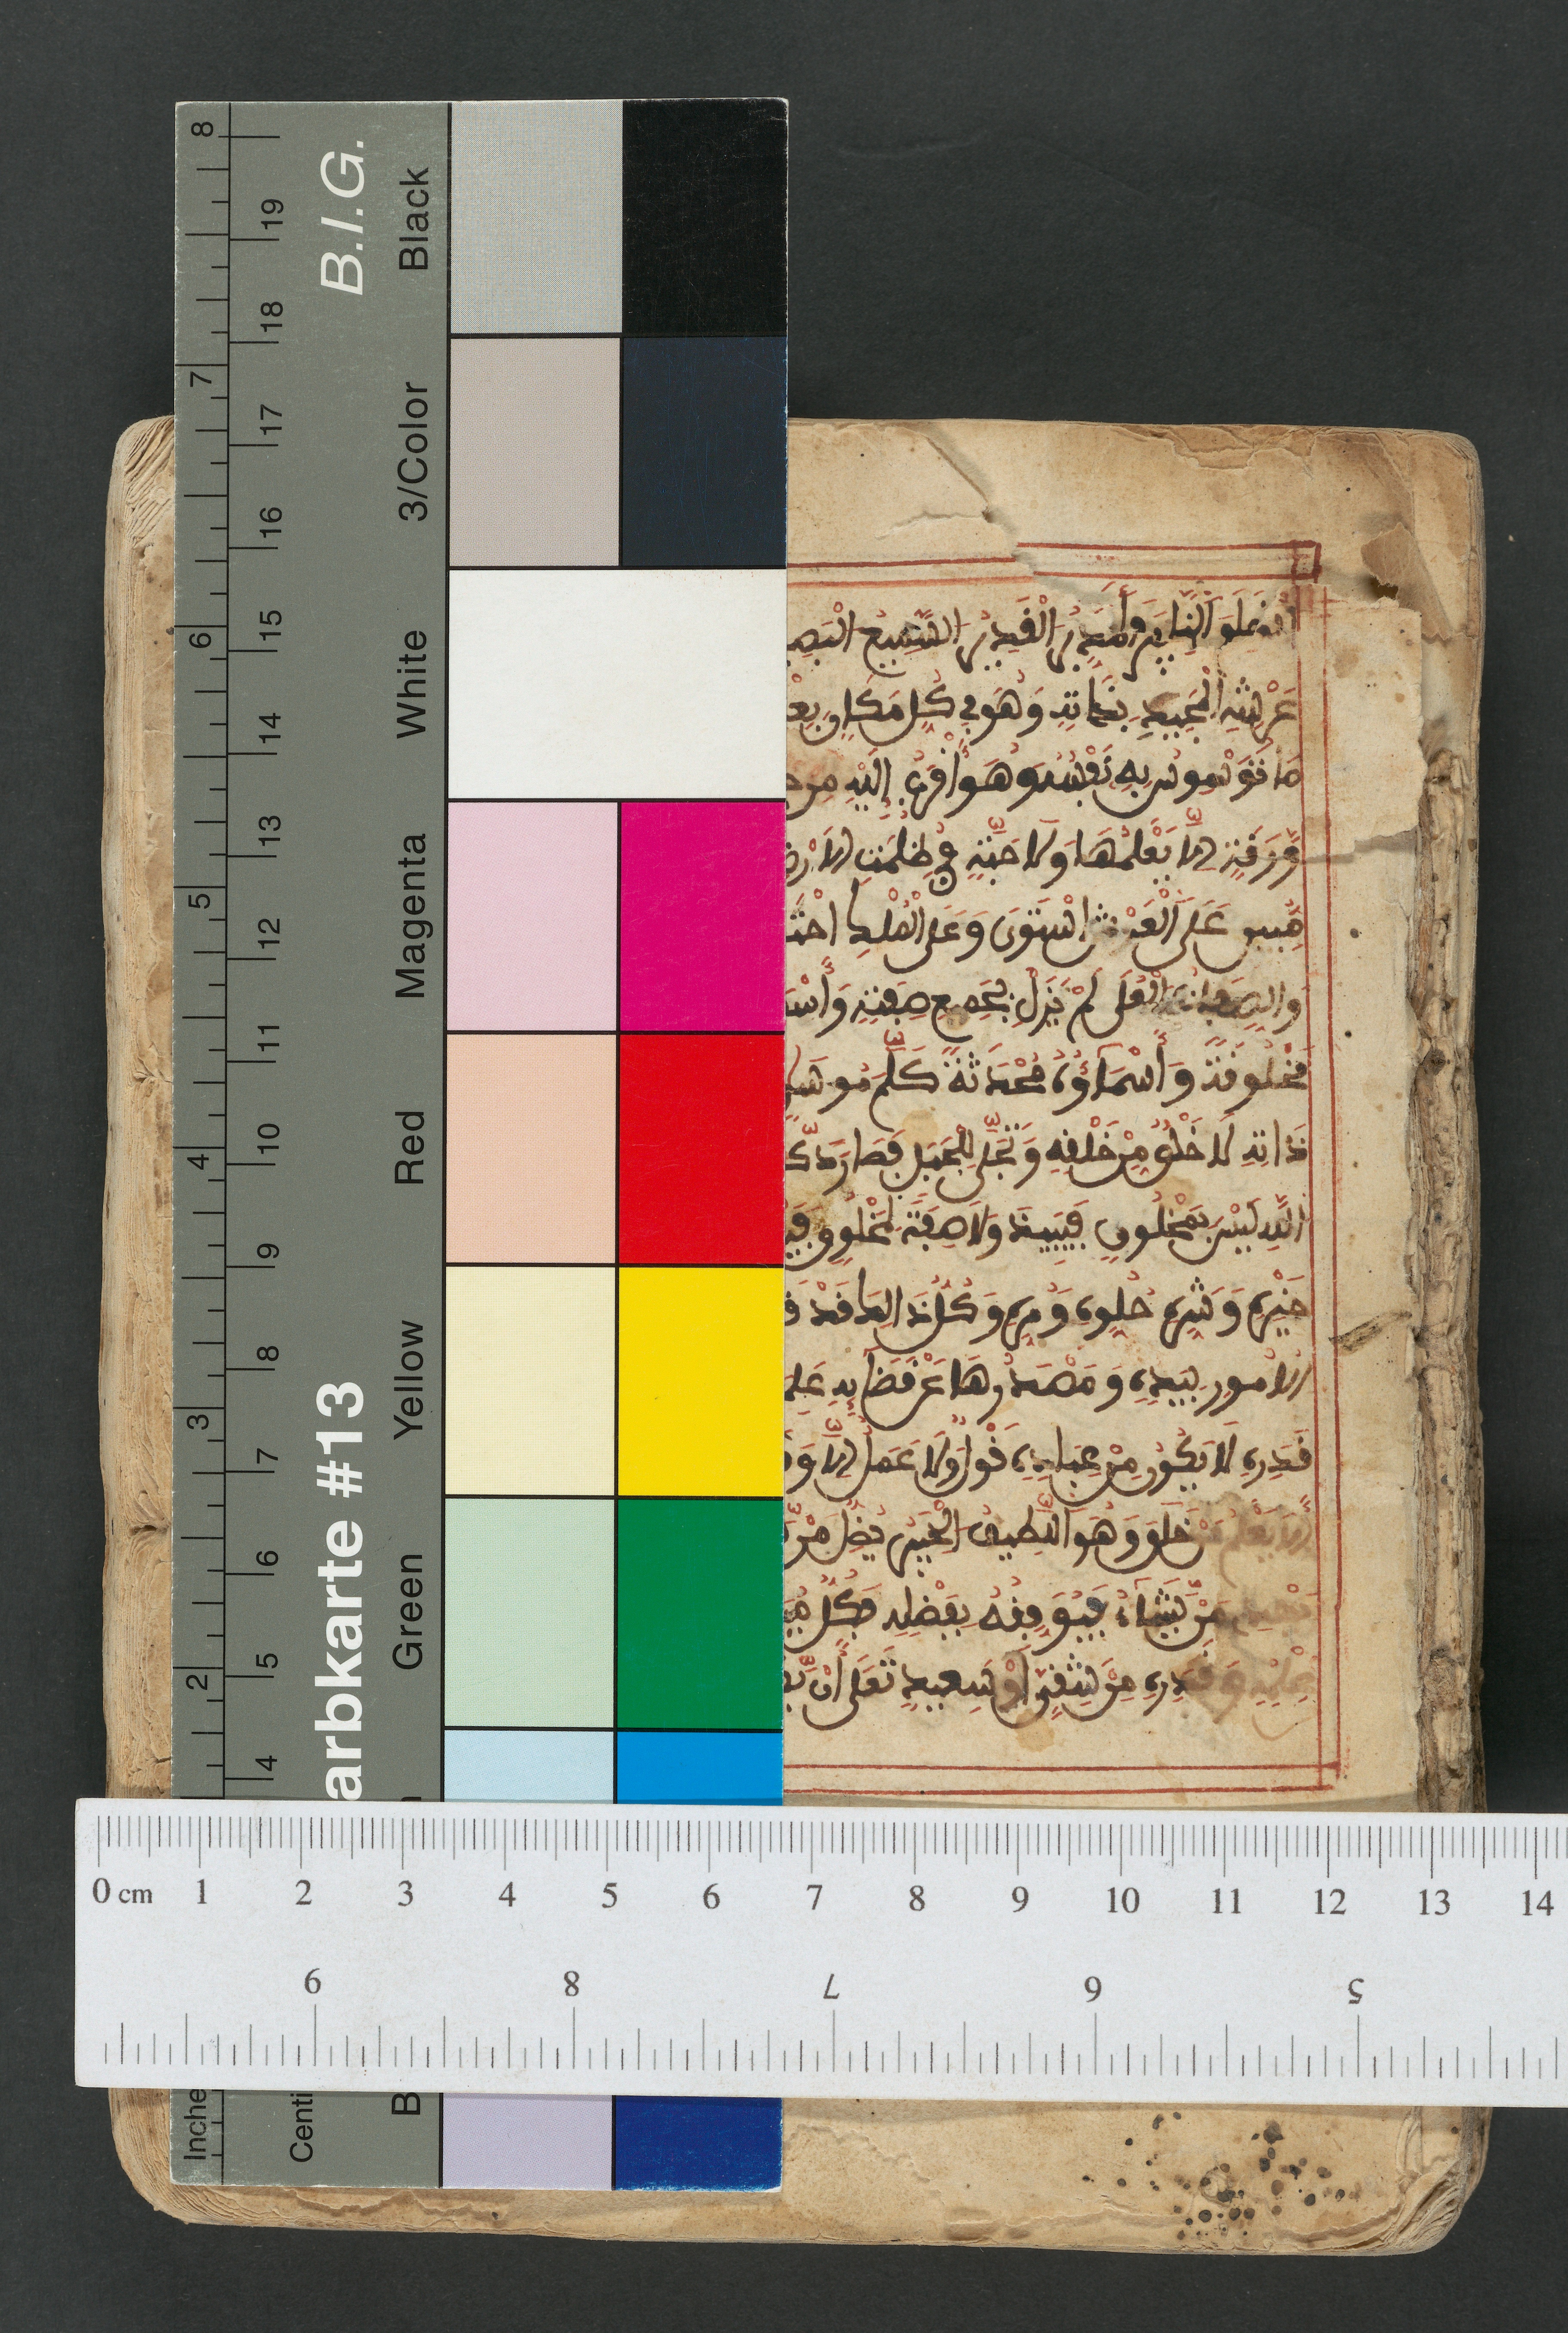 B.I.G.
arbkarte #13
Black
3/Color
White
Magenta
Red
Yellow
Green
B
Inche
Centi
8
7
6
5
4
3
2
19
18
17
16
15
14
13
12
11
10
9
8
7
6
5
4
المدبر القدير السميع البصي
عرشه المجيد بذاته وهو في كل مكان بع
ما توسوس به نفسه وهو أقرب إليه من ح
ورقة إلا يعلمها ولا حبة في ظلمت الأرض
على العرش استوى وعلى الملك احت
والصفات العلى لم يزل بجميع صفته وأسم
مخلوقة وأسماؤه محدثة كلم موسى
ذاته لا خلق من خلقه وتجلى للجبل فصار دك
الله ليس بمخلوق فيبيد ولا صفة لمخلوق في
خيره وشره حلوه ومره وكل ذالك قد ق
الأمور بيده ومصدرها عن قضائه علم
قدره لا يكون من عباده قول ولا عمل إلا وق
ألا يعلم من خلق وهو اللطيف الخبير يضل من
من يشاء فيوفقه بفضله فكل مي
وقدره من شقي أو سعيد تعلى أن
0 cm 1 2 3 4 5 6 7 8 9 10 11 12 13 14
9 8 7 6 5